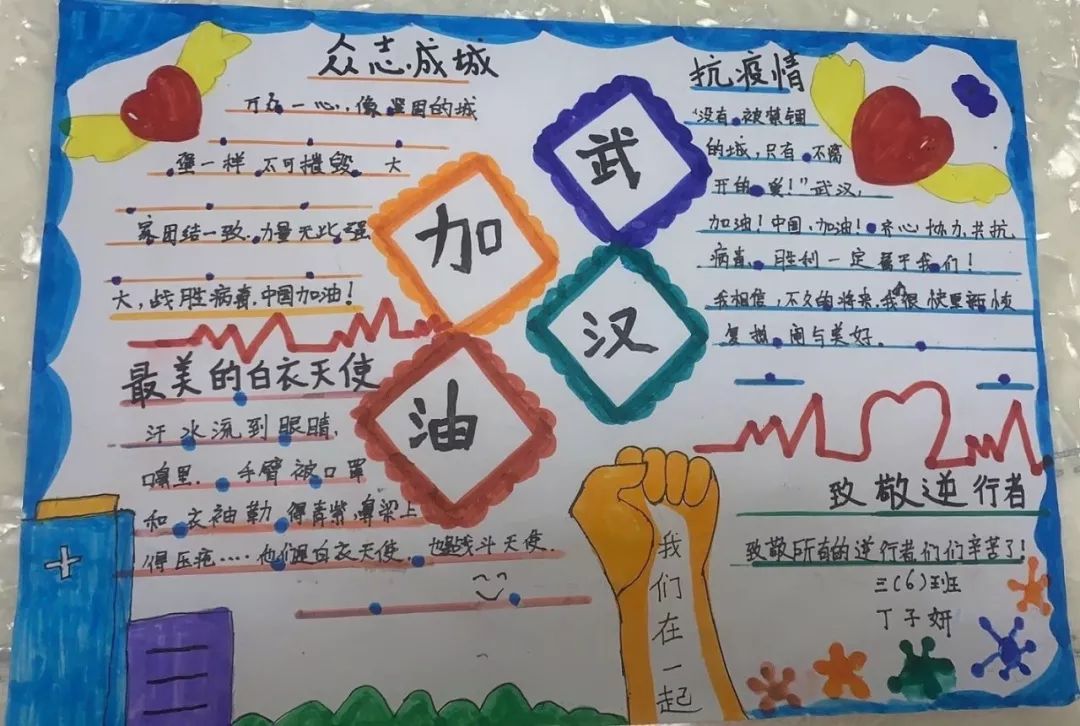 众志成城
万众一心,像坚固的城
堡一样,不可摧毁。大
家团结一致,力量无比强
大,战胜病毒,中国加油!
武
加
汉
油
抗疫情
“没有被禁锢
的城,只有不离
开的爱!”武汉,
加油!中国,加油!齐心协力,共抗
病毒,胜利一定属于我们!
我相信,不久的将来,我很快重新恢
复热闹与美好。
最美的白衣天使
汗水流到眼睛,
嘴里。手臂被口罩
和衣袖勒得青紫,鼻梁上
得压疮……他们是白衣天使,也是战斗天使.
我们在一起
致敬逆行者
致敬所有的逆行者们们辛苦了!
三(6)班
丁子妍